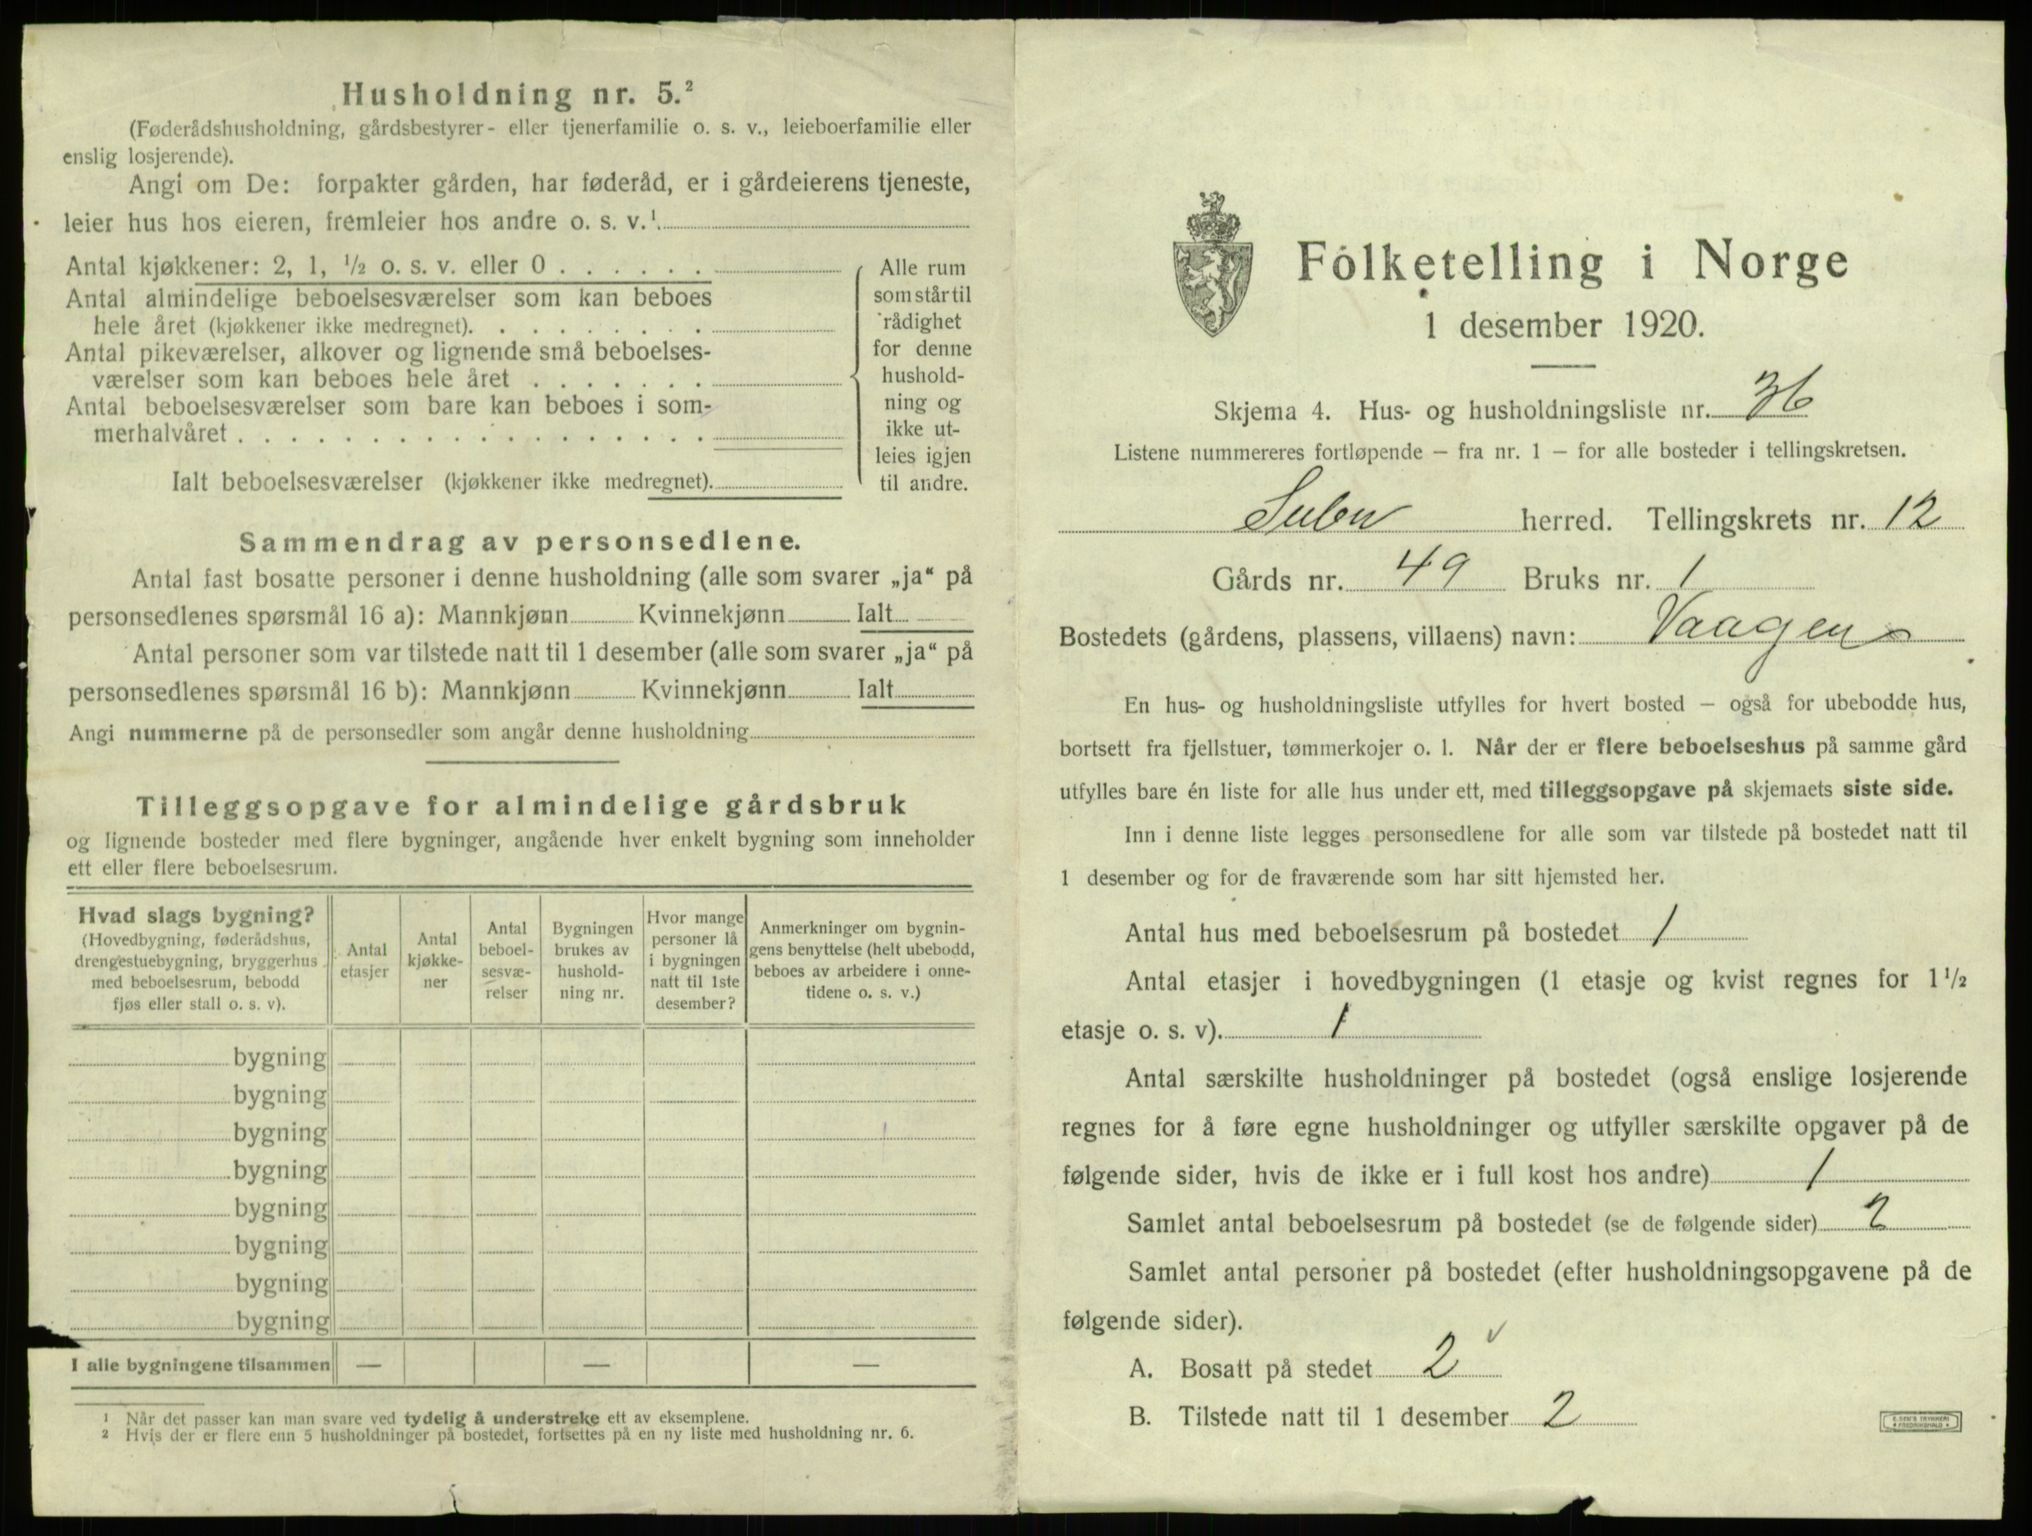 Husholdning nr. 5.²
(Føderådshusholdning, gårdsbestyrer- eller tjenerfamilie o. s. v., leieboerfamilie eller
enslig losjerende).
Angi om De: forpakter gården, har føderåd, er i gårdeierens tjeneste,
leier hus hos eieren, fremleier hos andre o. s. v.¹
Antal kjøkkener: 2, 1, ½ o. s. v. eller 0 . . . . . .
Antal almindelige beboelsesværelser som kan beboes
hele året (kjøkkener ikke medregnet). . . . . . . . .
Antal pikeværelser, alkover og lignende små beboelses-
værelser som kan beboes hele året . . . . . . .
Antal beboelsesværelser som bare kan beboes i som-
merhalvåret . . . . . . . . . . . . . . . . . .
Ialt beboelsesværelser (kjøkkener ikke medregnet).
Alle rum
som står til
rådighet
for denne
hushold-
ning og
ikke ut-
leies igjen
til andre.
Sammendrag av personsedlene.
Antal fast bosatte personer i denne husholdning (alle som svarer „ja“ på
personsedlenes spørsmål 16 a): Mannkjønn Kvinnekjønn Ialt
Antal personer som var tilstede natt til 1 desember (alle som svarer „ja“ på
personsedlenes spørsmål 16 b): Mannkjønn Kvinnekjønn Ialt
Angi nummerne på de personsedler som angår denne husholdning
Tilleggsopgave for almindelige gårdsbruk
og lignende bosteder med flere bygninger, angående hver enkelt bygning som inneholder
ett eller flere beboelsesrum.
Hvad slags bygning?
(Hovedbygning, føderådshus,
drengestuebygning, bryggerhus
med beboelsesrum, bebodd
fjøs eller stall o. s. v).
Antal
etasjer
Antal
kjøkke-
ner
Antal
beboel-
sesvæ-
relser
Bygningen
brukes av
hushold-
ning nr.
Hvor mange
personer lå
i bygningen
natt til 1ste
desember?
Anmerkninger om bygnin-
gens benyttelse (helt ubebodd,
beboes av arbeidere i onne-
tidene o. s. v.)
bygning
bygning
bygning
bygning
bygning
bygning
bygning
bygning
I alle bygningene tilsammen — — —
¹ Når det passer kan man svare ved tydelig å understreke ett av eksemplene.
² Hvis der er flere enn 5 husholdninger på bostedet, fortsettes på en ny liste med husholdning nr. 6.
Folketelling i Norge
1 desember 1920.
Skjema 4. Hus- og husholdningsliste nr. 36
Listene nummereres fortløpende – fra nr. 1 – for alle bosteder i tellingskretsen.
herred. Tellingskrets nr. 12
Gårds nr. 49 Bruks nr. 1
Bostedets (gårdens, plassens, villaens) navn: Vaagen
En hus- og husholdningsliste utfylles for hvert bosted – også for ubebodde hus,
bortsett fra fjellstuer, tømmerkojer o. l. Når der er flere beboelseshus på samme gård
utfylles bare én liste for alle hus under ett, med tilleggsopgave på skjemaets siste side.
Inn i denne liste legges personsedlene for alle som var tilstede på bostedet natt til
1 desember og for de fraværende som har sitt hjemsted her.
Antal hus med beboelsesrum på bostedet 1
Antal etasjer i hovedbygningen (1 etasje og kvist regnes for 1½
etasje o. s. v). 1
Antal særskilte husholdninger på bostedet (også enslige losjerende
regnes for å føre egne husholdninger og utfyller særskilte opgaver på de
følgende sider, hvis de ikke er i full kost hos andre) 1
Samlet antal beboelsesrum på bostedet (se de følgende sider) 2
Samlet antal personer på bostedet (efter husholdningsopgavene på de
følgende sider).
A. Bosatt på stedet 2 ✓
B. Tilstede natt til 1 desember 2